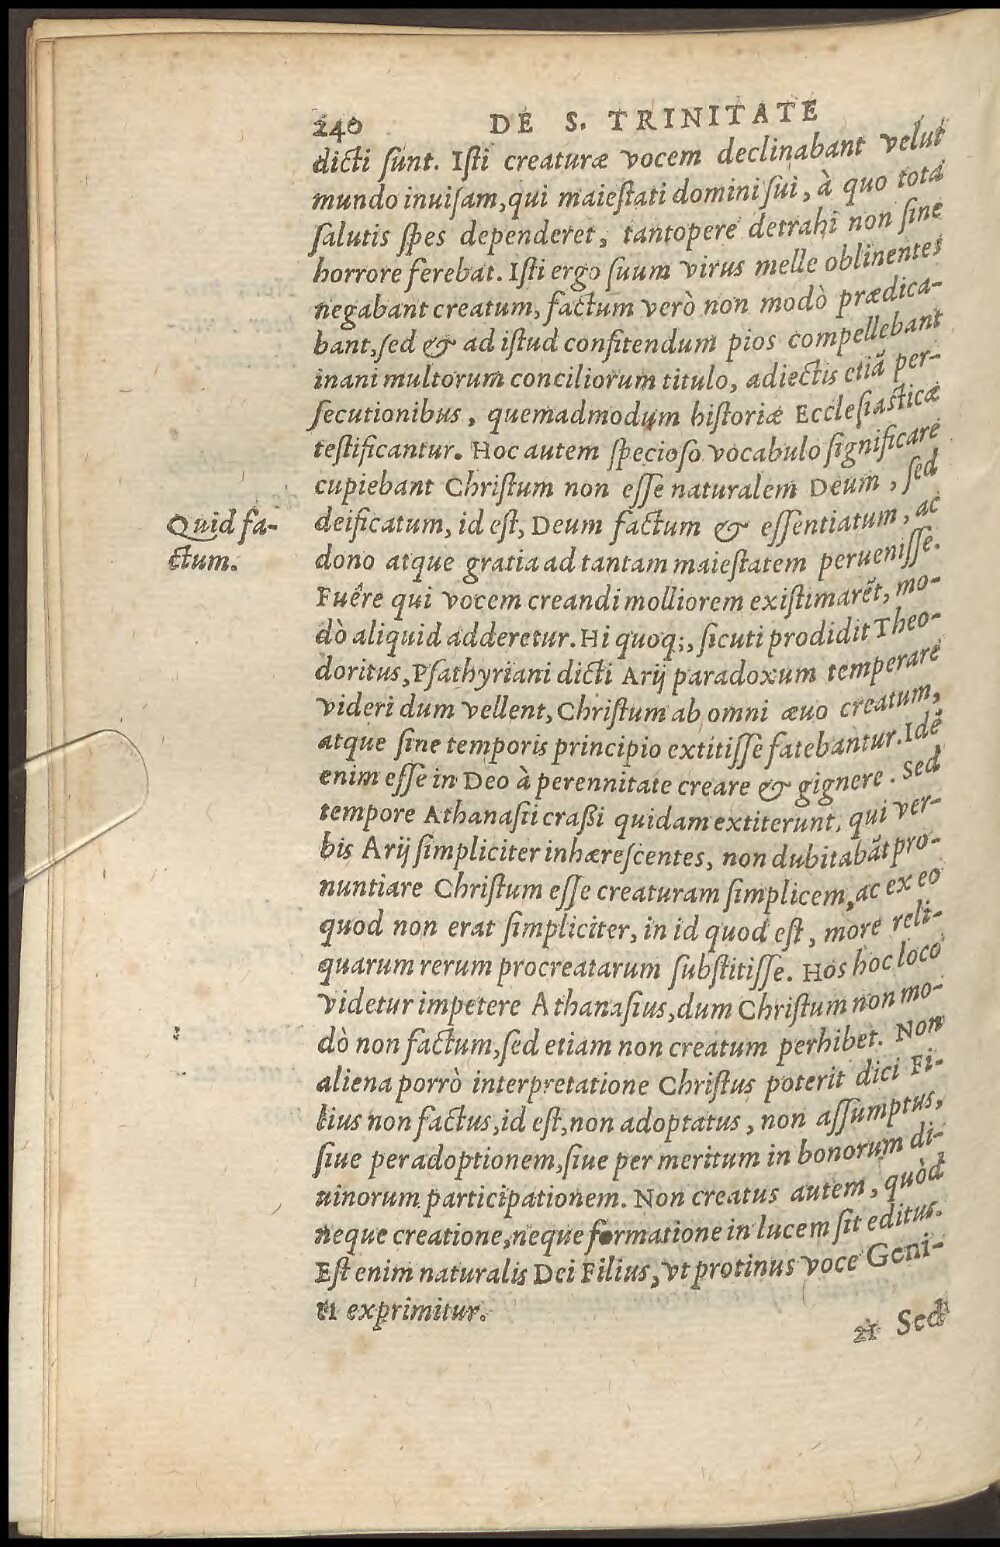 240 DE S. TRINITATE
dicti sunt. Isti creaturæ vocem declinabant velut
mundo inuisam, qui maiestati domini sui, à quo tota
salutis spes dependeret, tantopere detrahi non sine
horrore ferebat. Isti ergo suum virus melle oblinentes
negabant creatum, factum verò non modò prædica-
bant, sed & ad istud confitendum pios compellebant
inani multorum conciliorum titulo, adiectis etiã per-
secutionibus, quemadmodum historiæ Ecclesiasticæ
testificantur. Hoc autem specioso vocabulo significare
cupiebant Christum non esse naturalem Deum, sed
Quid fa-
ctum.
deificatum, id est, Deum factum & essentiatum, ac
dono atque gratia ad tantam maiestatem peruenisse.
Fuêre qui vocem creandi molliorem existimarẽt, mo-
dò aliquid adderetur. Hi quoq;, sicuti prodidit Theo-
doritus, Psathyriani dicti Arij paradoxum temperare
videri dum vellent, Christum ab omni æuo creatum,
atque sine temporis principio extitisse fatebantur. Idẽ
enim esse in Deo à perennitate creare & gignere. Sed
tempore Athanasii craßi quidam extiterunt, qui ver-
bis Arij simpliciter inhærescentes, non dubitabãt pro-
nuntiare Christum esse creaturam simplicem, ac ex eo
quod non erat simpliciter, in id quod est, more reli-
quarum rerum procreatarum substitisse. Hos hoc loco
videtur impetere Athanasius, dum Christum non mo-
dò non factum, sed etiam non creatum perhibet. Non
aliena porrò interpretatione Christus poterit dici Fi-
lius non factus, id est, non adoptatus, non assumptus,
siue per adoptionem, siue per meritum in bonorum di-
uinorum participationem. Non creatus autem, quòd
neque creatione, neque formatione in lucem sit editus.
Est enim naturalis Dei Filius, vt protinus voce Geni-
ti exprimitur.
21 Sed